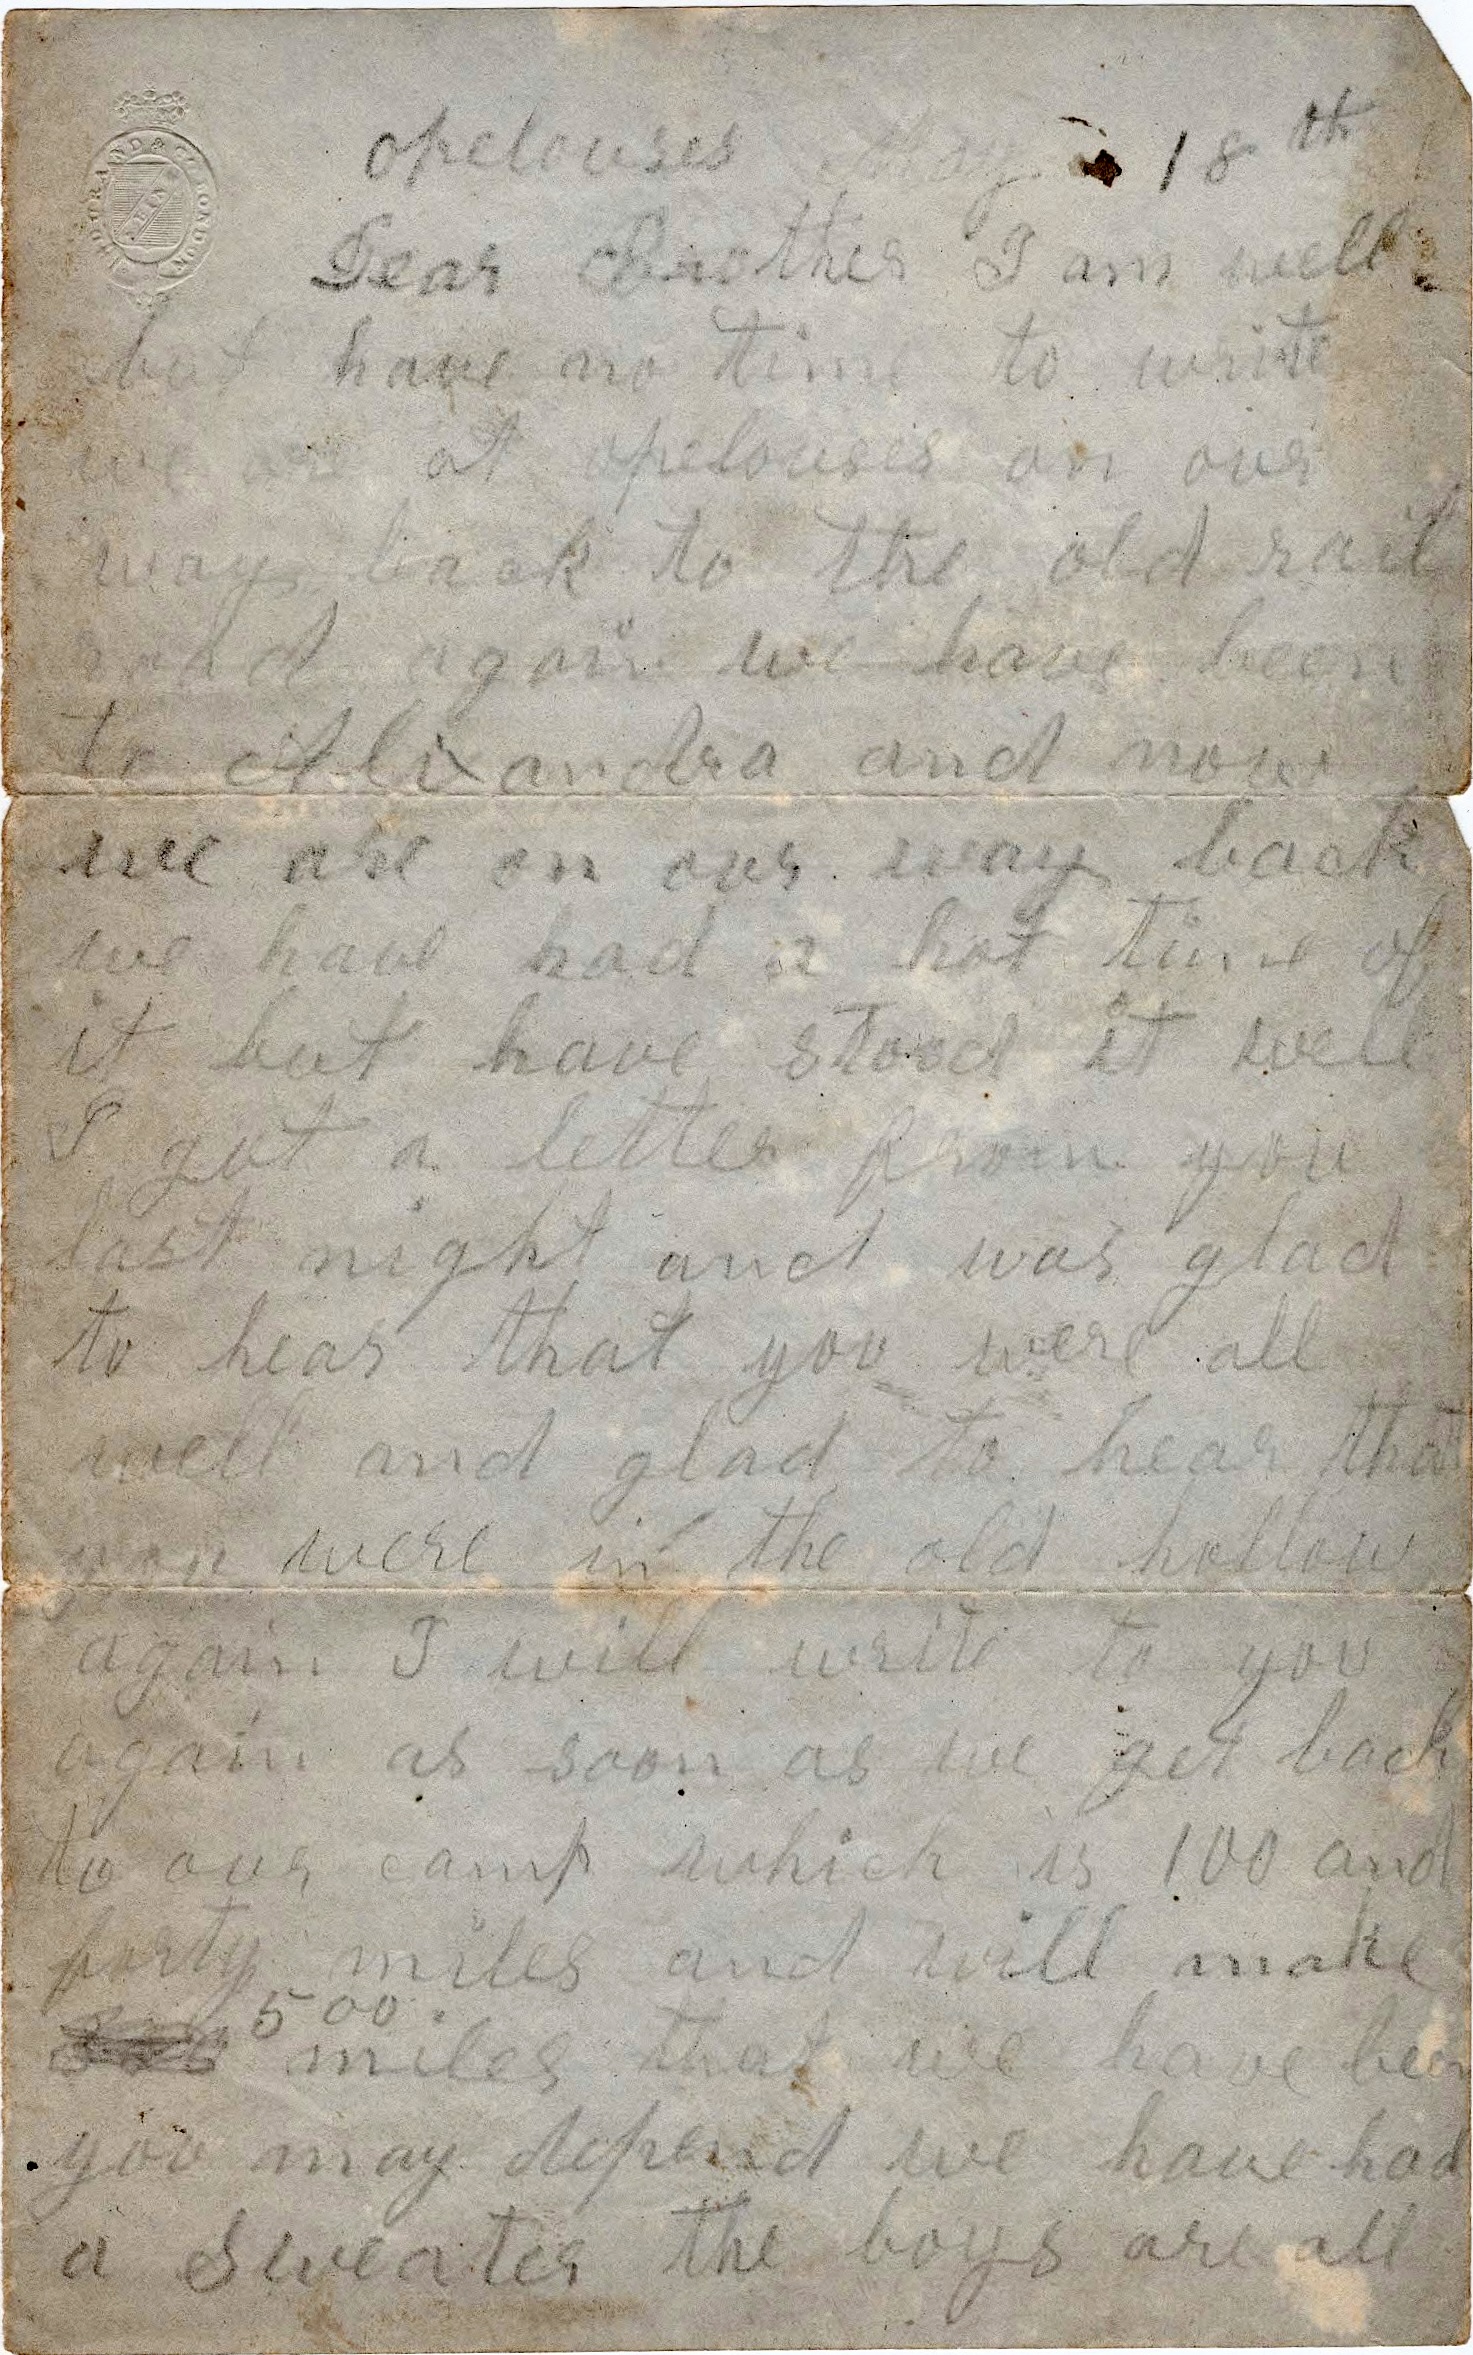 opelouses May 18th
Dear Brother I am well
but have no time to write
we are at opelouses on our
way back to the old rail
road again we have been
to Alixandra and now
we are on our way back
we have had a hot time of
it but have stood it well
I got a letter from you
last night and was glad
to hear that you were all
well and glad to hear that
you were in the old hollow
again I will write to you
again as soon as we get back
to our camp which is 100 and
forty miles and will make
500 miles that we have been
you may depend we have had
a Sweater the boys are all